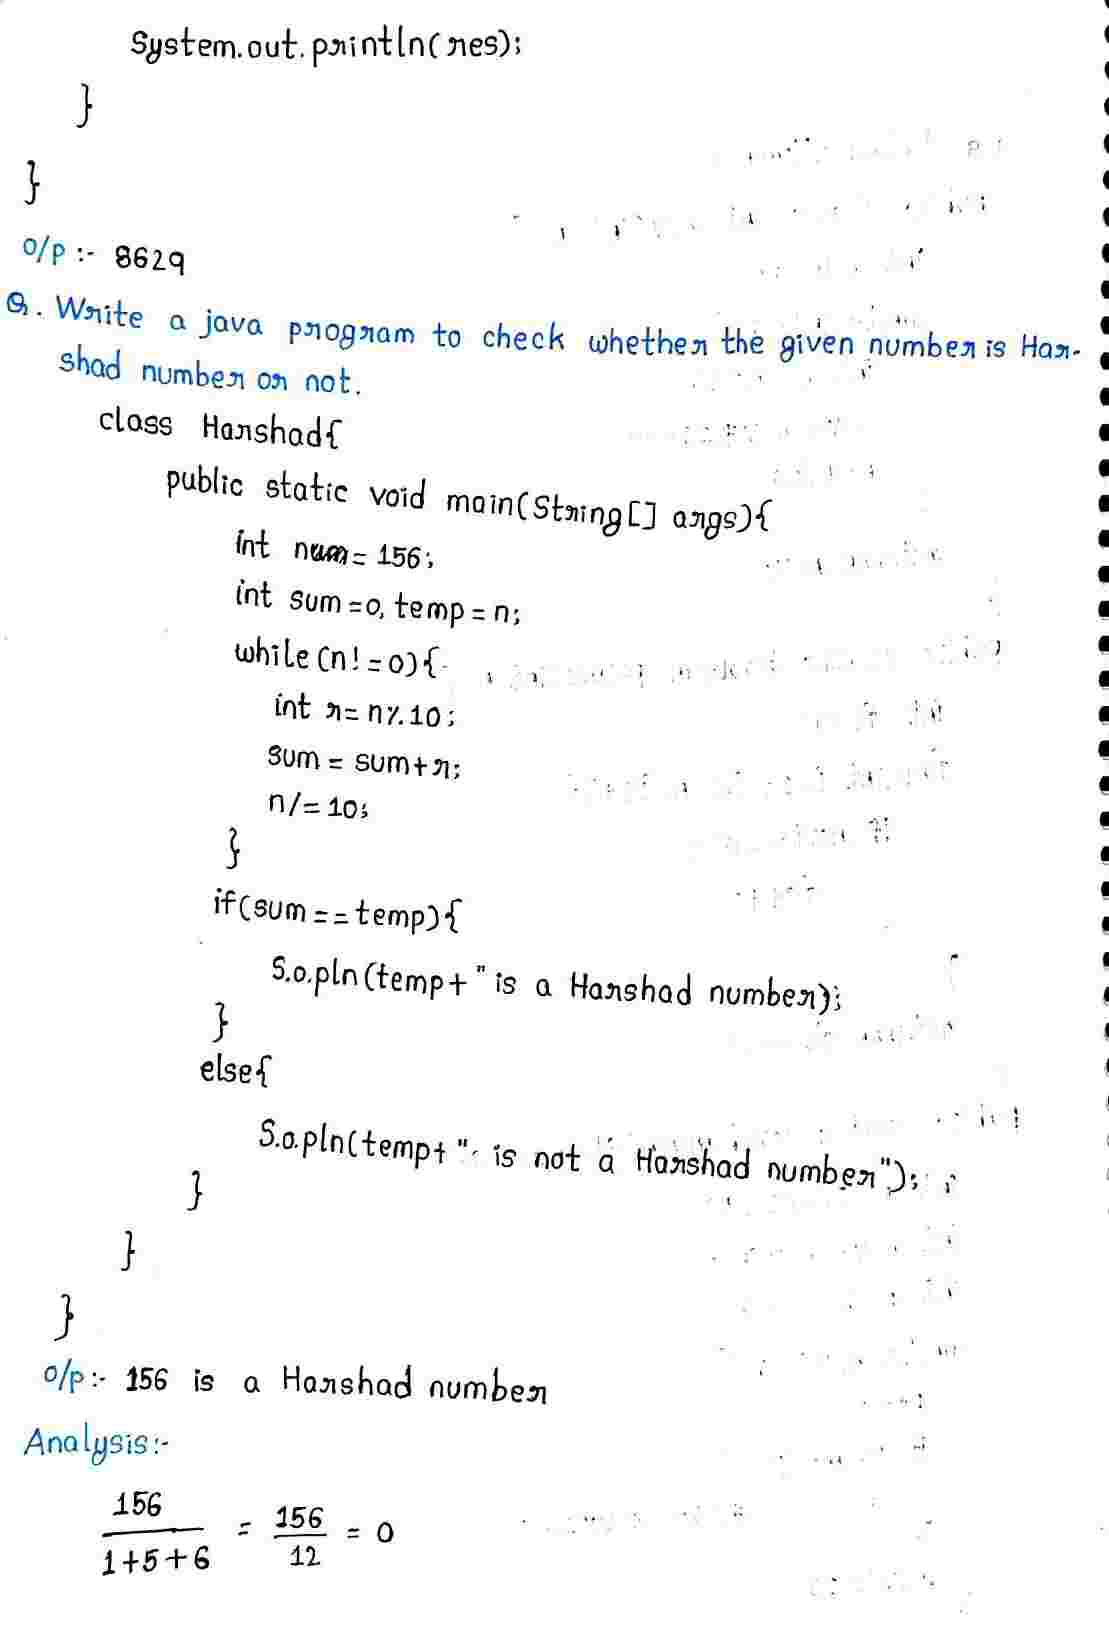 System.out.println(res);
}
}
O/P :- 8629
Q. Write a java program to check whether the given number is Har-
shad number or not.
class Harshad{
public static void main(String[] args){
int num= 156;
int sum=0, temp=n;
while(n!=0){
int r=n%10;
sum = sum+r;
n/=10;
}
if(sum==temp){
S.o.pln(temp+" is a Harshad number);
}
else{
S.o.pln(temp+" is not a Harshad number");
}
}
}
O/p:- 156 is a Harshad number
Analysis:-
156 / 1+5+6 = 156 / 12 = 0